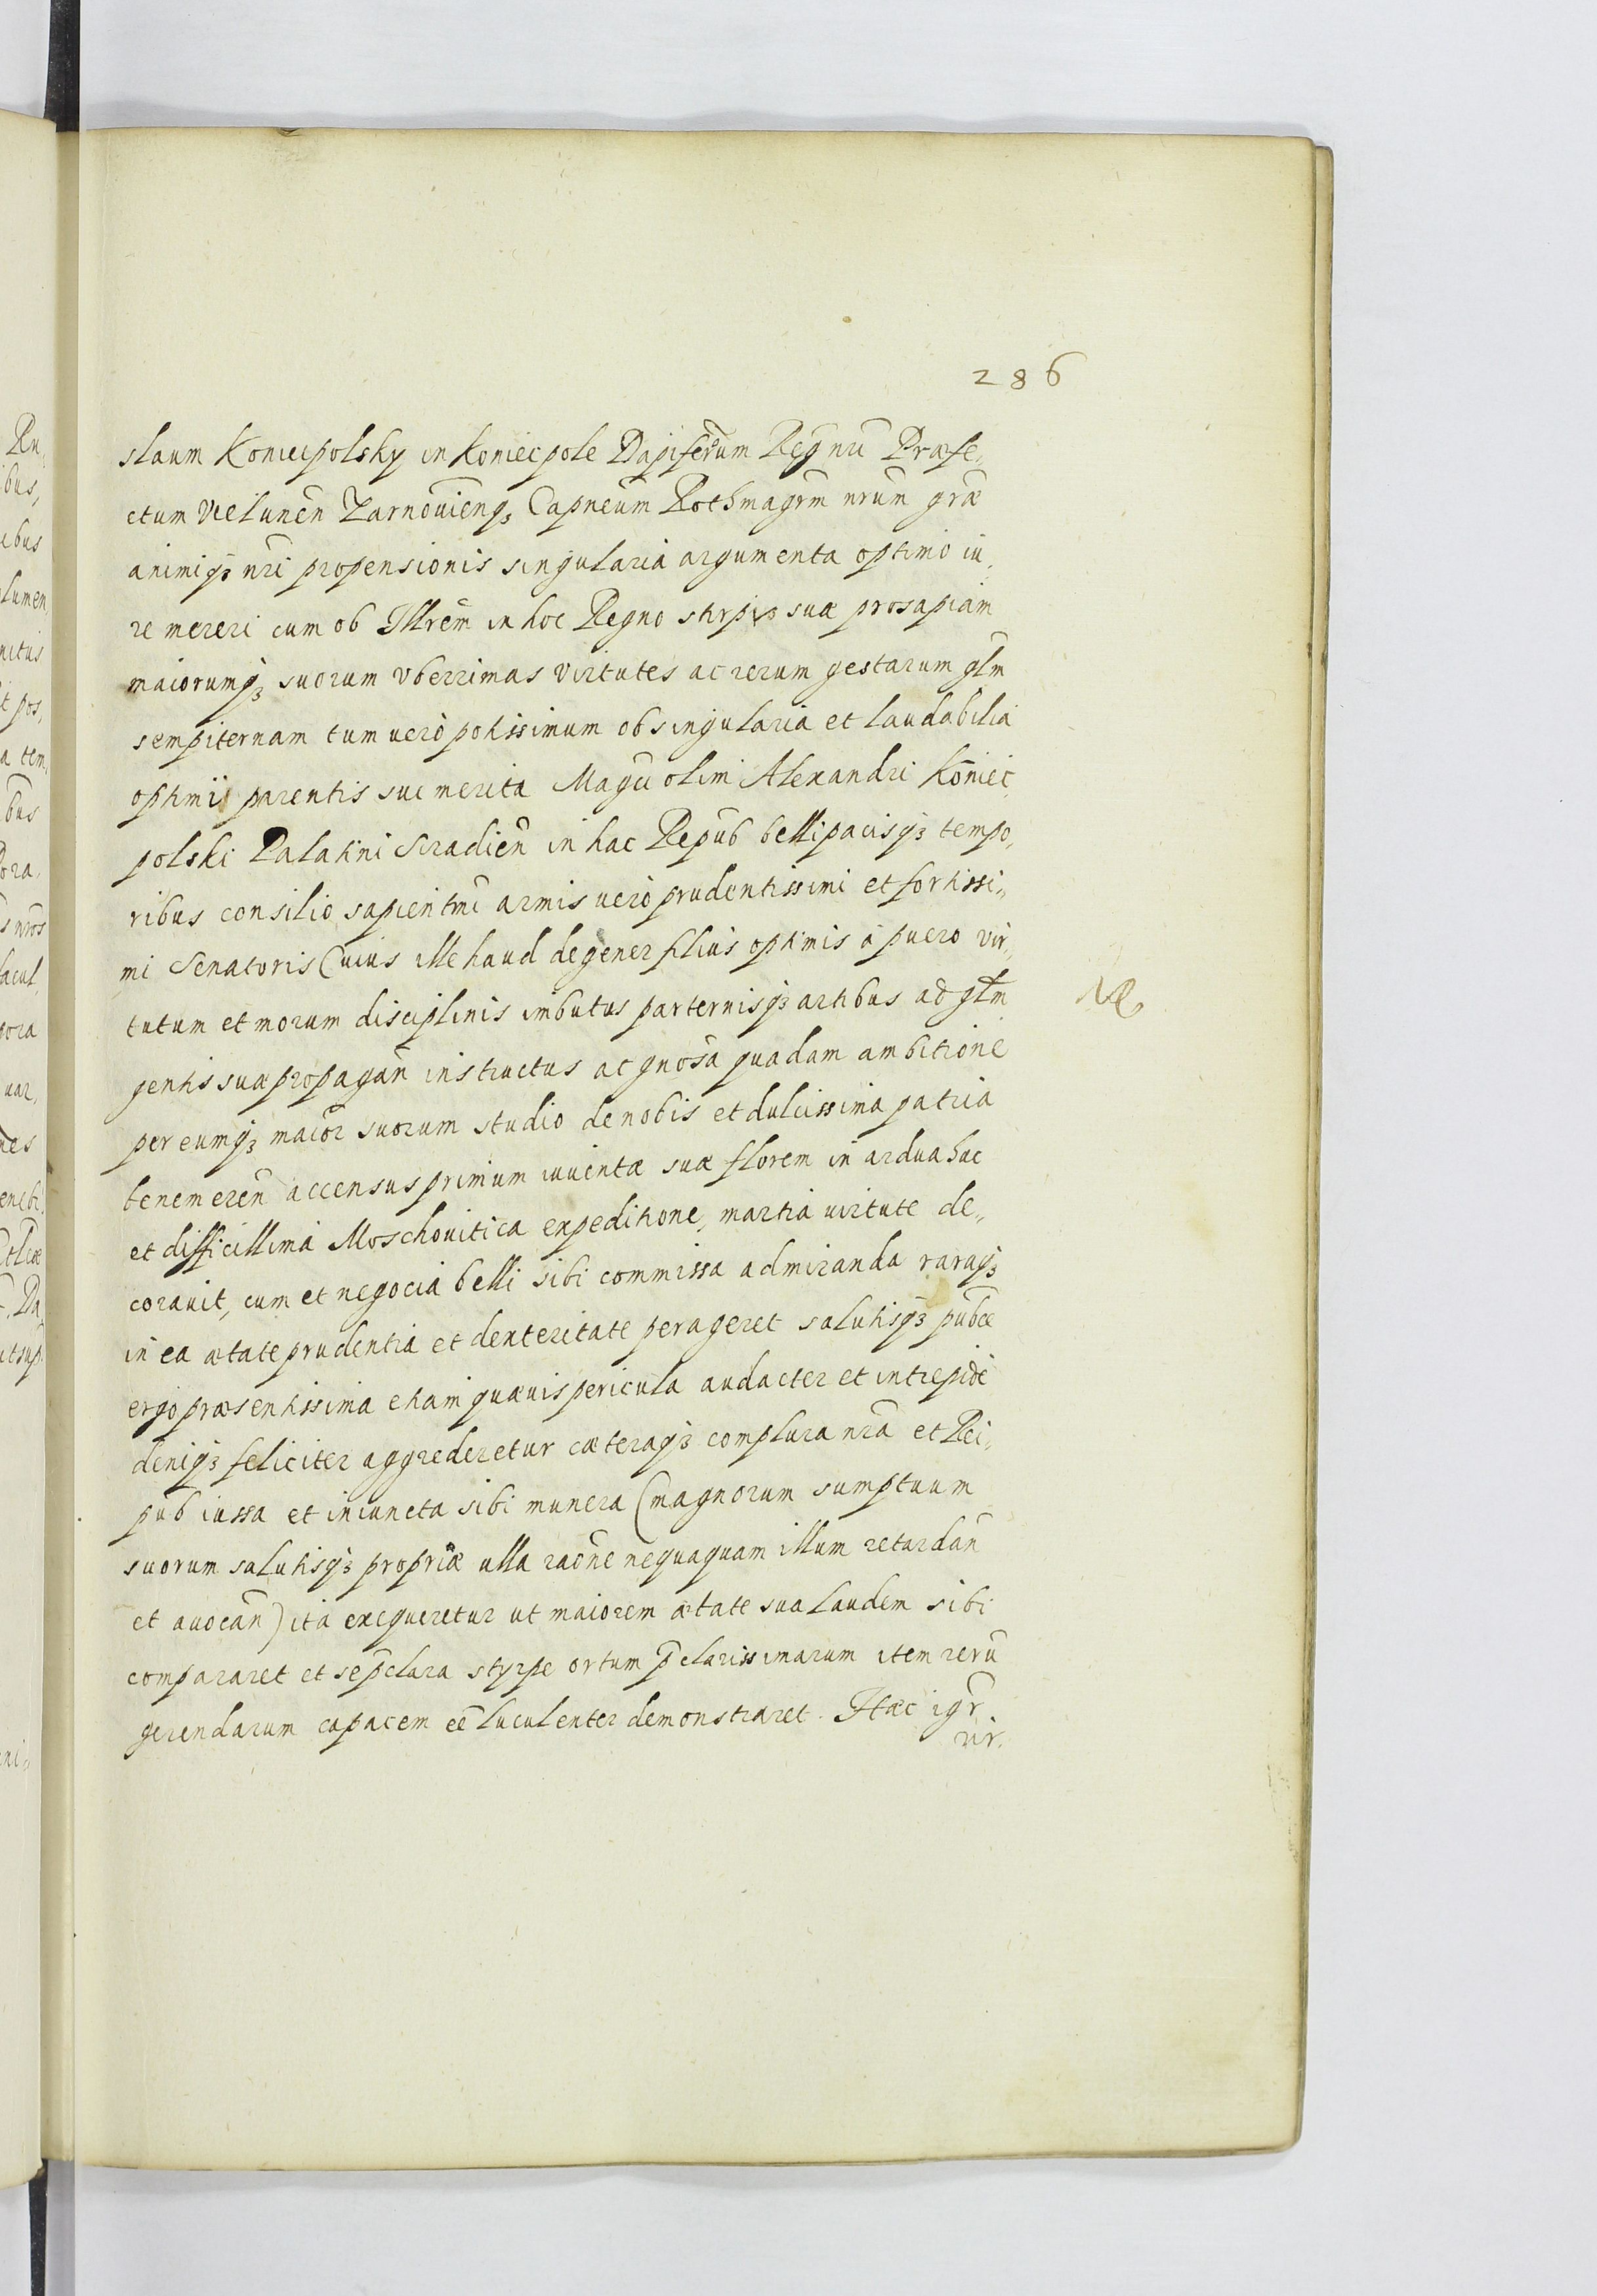 286
slaum Koniecpolsky in Koniecpole Dapiferum Regni nri Præfe„
ctum Vielunen̄ Zarnouienq₃ Capneum Rothmagrm nrum græ
animiq₃ nri propensionis singularia argumenta optimo iu„
re mereri cum ob Illrem in hoc Regno stirpis suæ prosapiam
maiorumq₃ suorum vberrimas virtutes ac rerum gestarum glm
sempiternam tum vero potissimum ob singularia et laudabilia
optimi parentis sui merita Magci olim Alexandri Koniec„
polski Palatini Siradien̄ in hac Repub belli pacisq₃ tempo„
ribus consilio sapientmi armis uero prudentissimi et fortissi„
mi Senatoris Cuius ille haud degener filius optimis à puero vir„
tutum et morum disciplinis imbutus parternisq₃ artibus ad glm
gentis suæ propagan̄ instructus ac gnosa quadam ambitione
per eumq₃ maior̄ suorum studio de nobis et dulcissima patria
benemeren̄ accensus primum iuuentæ suæ florem in ardua hac
et difficillima Moschouitica expeditione, martia uirtute de„
corauit, cum et negocia belli sibi commissa admiranda raraq₃
in ea ætate prudentia et dexteritate perageret salutisq₃ pubcæ
ergo præsentissima etiam quæuis pericula audacter et intrepide
deniq₃ feliciter aggrederetur cæteraq₃ complura nra et Rei„
pub iussa et iniuncta sibi munera (magnorum sumptuum
suorum salutisq₃ propriæ ulla raōne nequaquam illum retardan̄
et auocan̄) ita exequeretur ut maiorem ætate sua laudem sibi
compararet et se p̄clara styrpe ortum p̄clarissimarum item rerū
gerendarum capacem eē luculenter demonstraret. Hæc igr̄
vir.